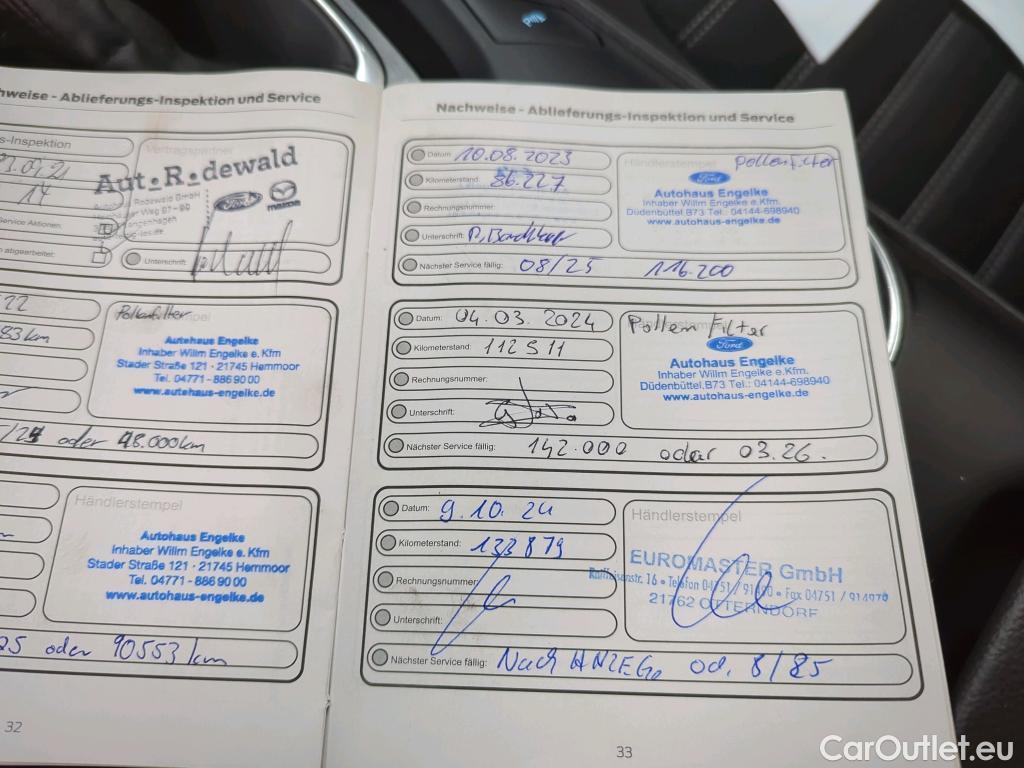 hweise - Ablieferungs-Inspektion und Service
s-Inspektion
Vertragspartner
Aut•R•dewald
Rodewald GmbH
Weg 87-90
Ford
mazda
Service Aktionen:
abgearbeitet:
Unterschrift:
22
83 km
oder 48.000 km
Pollenfilter
Autohaus Engelke
Inhaber Willm Engelke e. Kfm
Stader Straße 121 · 21745 Hemmoor
Tel. 04771 - 886 90 00
www.autohaus-engelke.de
Händlerstempel
Autohaus Engelke
Inhaber Willm Engelke e. Kfm
Stader Straße 121 · 21745 Hemmoor
Tel. 04771 - 886 90 00
www.autohaus-engelke.de
25 oder 90553 km
32
Nachweise - Ablieferungs-Inspektion und Service
Datum: 10.08.2023
Kilometerstand: 86.227
Rechnungsnummer:
Unterschrift:
Nächster Service fällig: 08/25 116.200
Händlerstempel
Pollenfilter
Ford
Autohaus Engelke
Inhaber Willm Engelke e.Kfm.
Düdenbüttel B73 Tel.: 04144-698940
www.autohaus-engelke.de
Datum: 04.03.2024
Kilometerstand: 112511
Rechnungsnummer:
Unterschrift:
Nächster Service fällig: 142.000 oder 03.26.
Pollen Filter
Ford
Autohaus Engelke
Inhaber Willm Engelke e.Kfm.
Düdenbüttel,B73 Tel.: 04144-698940
www.autohaus-engelke.de
Datum: 9.10.24
Kilometerstand: 133879
Rechnungsnummer:
Unterschrift:
Nächster Service fällig: Nach ANZEGE od. 8/25
Händlerstempel
EUROMASTER GmbH
Raiffeisenstr. 16 • Telefon 04751 / • Fax 04751 / 914970
21762 OTTERNDORF
33
CarOutlet.eu